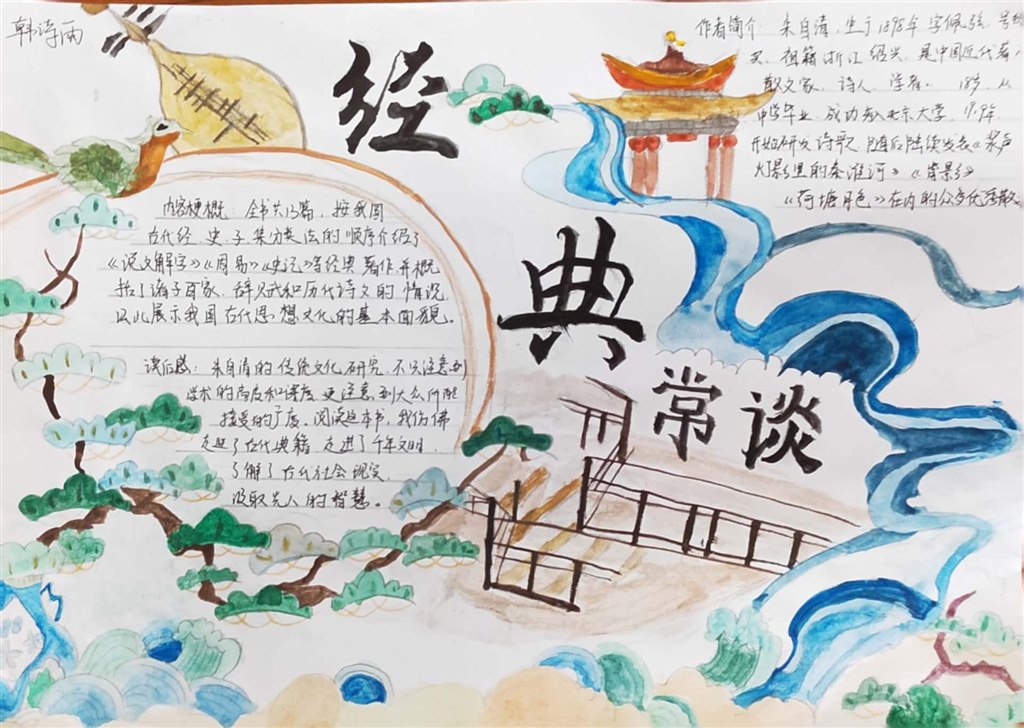 韩诗雨
经
典
常谈
作者简介：朱自清，生于1898年字佩弦，号秋
实，祖籍浙江绍兴，是中国近代著
散文家，诗人，学者。 18岁，从
中学毕业，成功考入北京大学，1919年
开始研发诗歌，随后陆续发表《桨声
灯影里的秦淮河》《背影》
《荷塘月色》在内的众多优秀散
内容梗概：全书共13篇，按我国
古代经、史、子、集分类法的顺序介绍了
《说文解字》《周易》《史记》等经典著作，并概
括了诸子百家，辞赋和历代诗文的情况，
以此展示我国古代思想文化的基本面貌。
读后感：朱自清的传统文化研究，不只注意到
学术的高度和深度，更注意到大众所能
接受的广度。阅读这本书，我仿佛
走进了古代典籍，走进了千年文明，
了解了古代社会现实，
汲取先人的智慧。